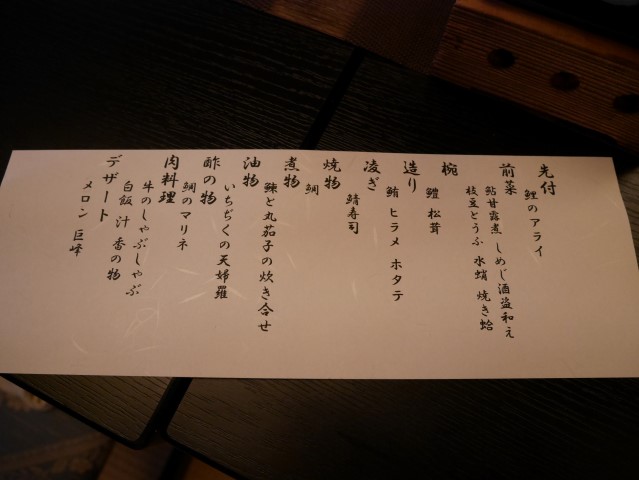 先付
鯉のアライ
前菜
鮎甘露煮 しめじ酒盗和え
枝豆とうふ 水蛸 焼き蛤
椀
鱧 松茸
造り
鮪 ヒラメ ホタテ
凌ぎ
鯖寿司
焼物
鯛
煮物
鰊と丸茄子の炊き合せ
油物
いちぢくの天婦羅
酢の物
鯛のマリネ
肉料理
牛のしゃぶしゃぶ
白飯 汁 香の物
デザート
メロン 巨峰